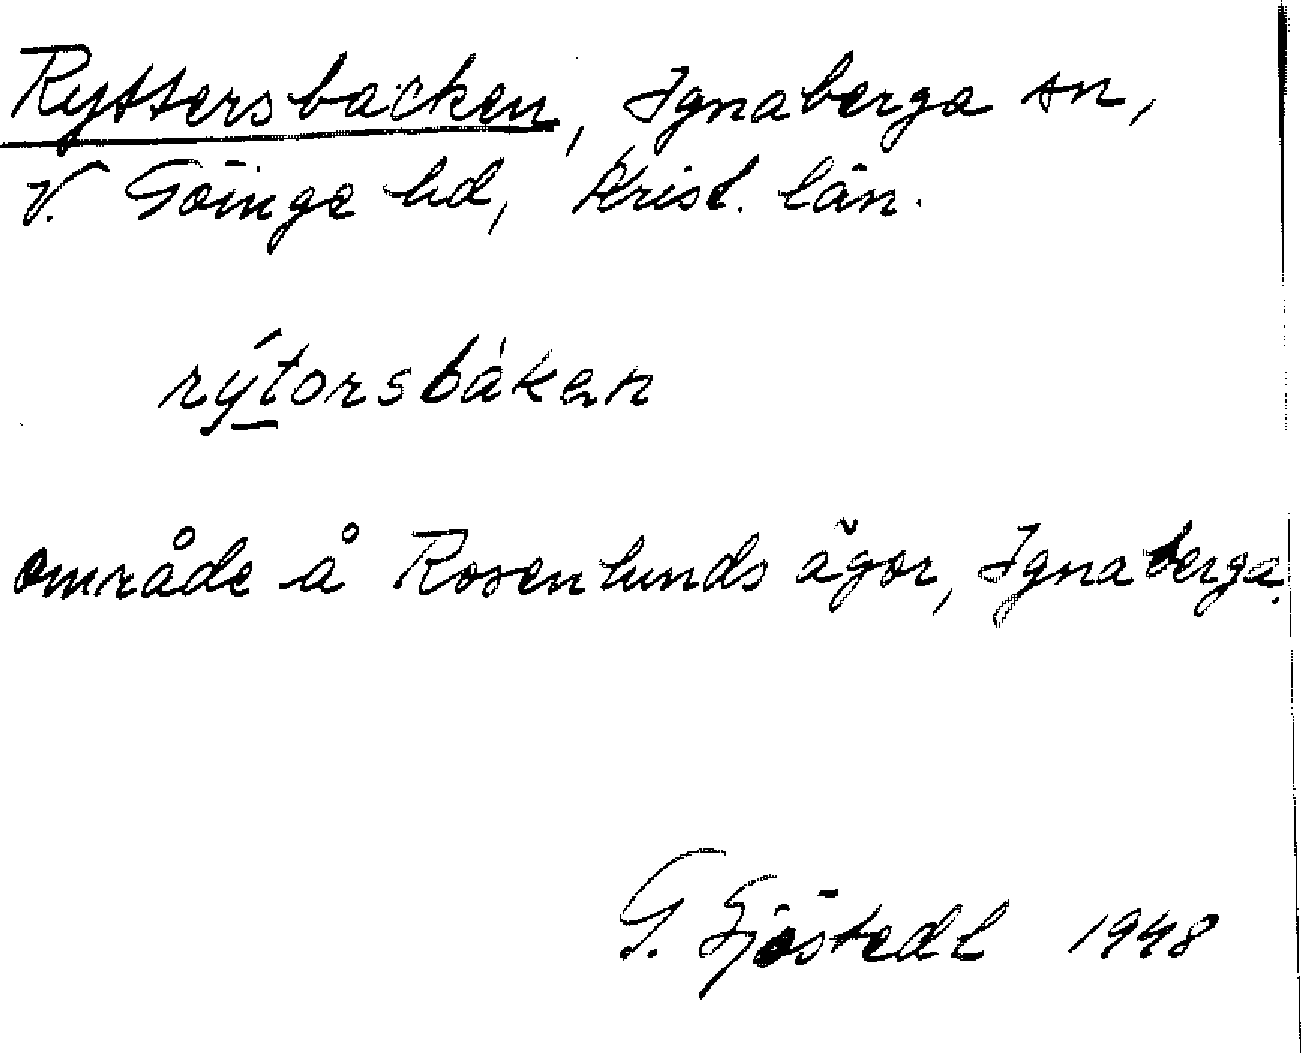 Ryttersbacken, Ignaberga sn,
V. Göinge hd, Krist. län.
rýtorsbáken
område å Rosenlunds ägor, Ignaberga.
G. Sjöstedt 1948